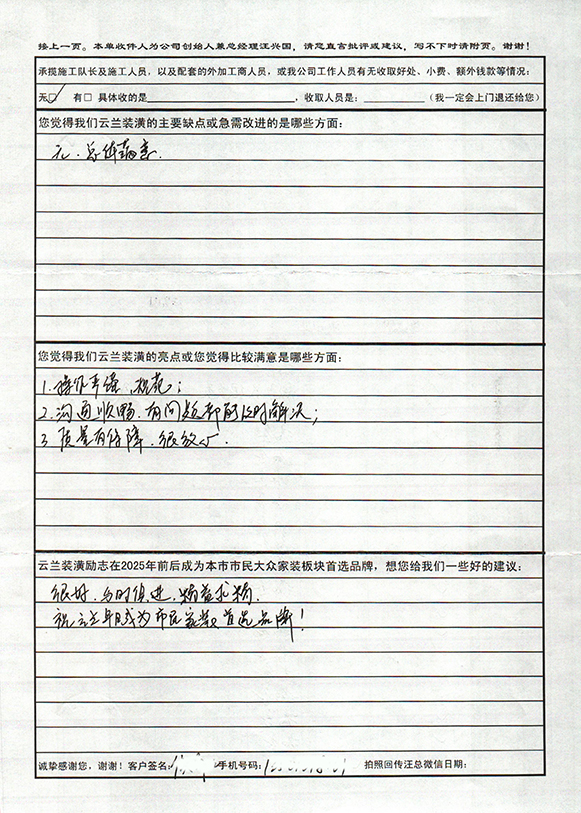 接上一页。本单收件人为公司创始人兼总经理汪兴国,请您直言批评或建议,写不下时请附页。谢谢!
承揽施工队长及施工人员,以及配套的外加工商人员,或我公司工作人员有无收取好处、小费、额外钱款等情况:
无☑ 有□ 具体收的是 ,收取人员是: (我一定会上门退还给您)
您觉得我们云兰装潢的主要缺点或急需改进的是哪些方面:
无.总体满意.
您觉得我们云兰装潢的亮点或您觉得比较满意是哪些方面:
1.
2.沟通顺畅.有问题都能及时解决;
3.质量有保障.很放心.
云兰装潢励志在2025年前后成为本市市民大众家装板块首选品牌,想您给我们一些好的建议:
很好.与时俱进.精益求精.
祝云兰早日成为市民家装首选品牌!
诚挚感谢您,谢谢!客户签名: 手机号码: 拍照回传汪总微信日期: